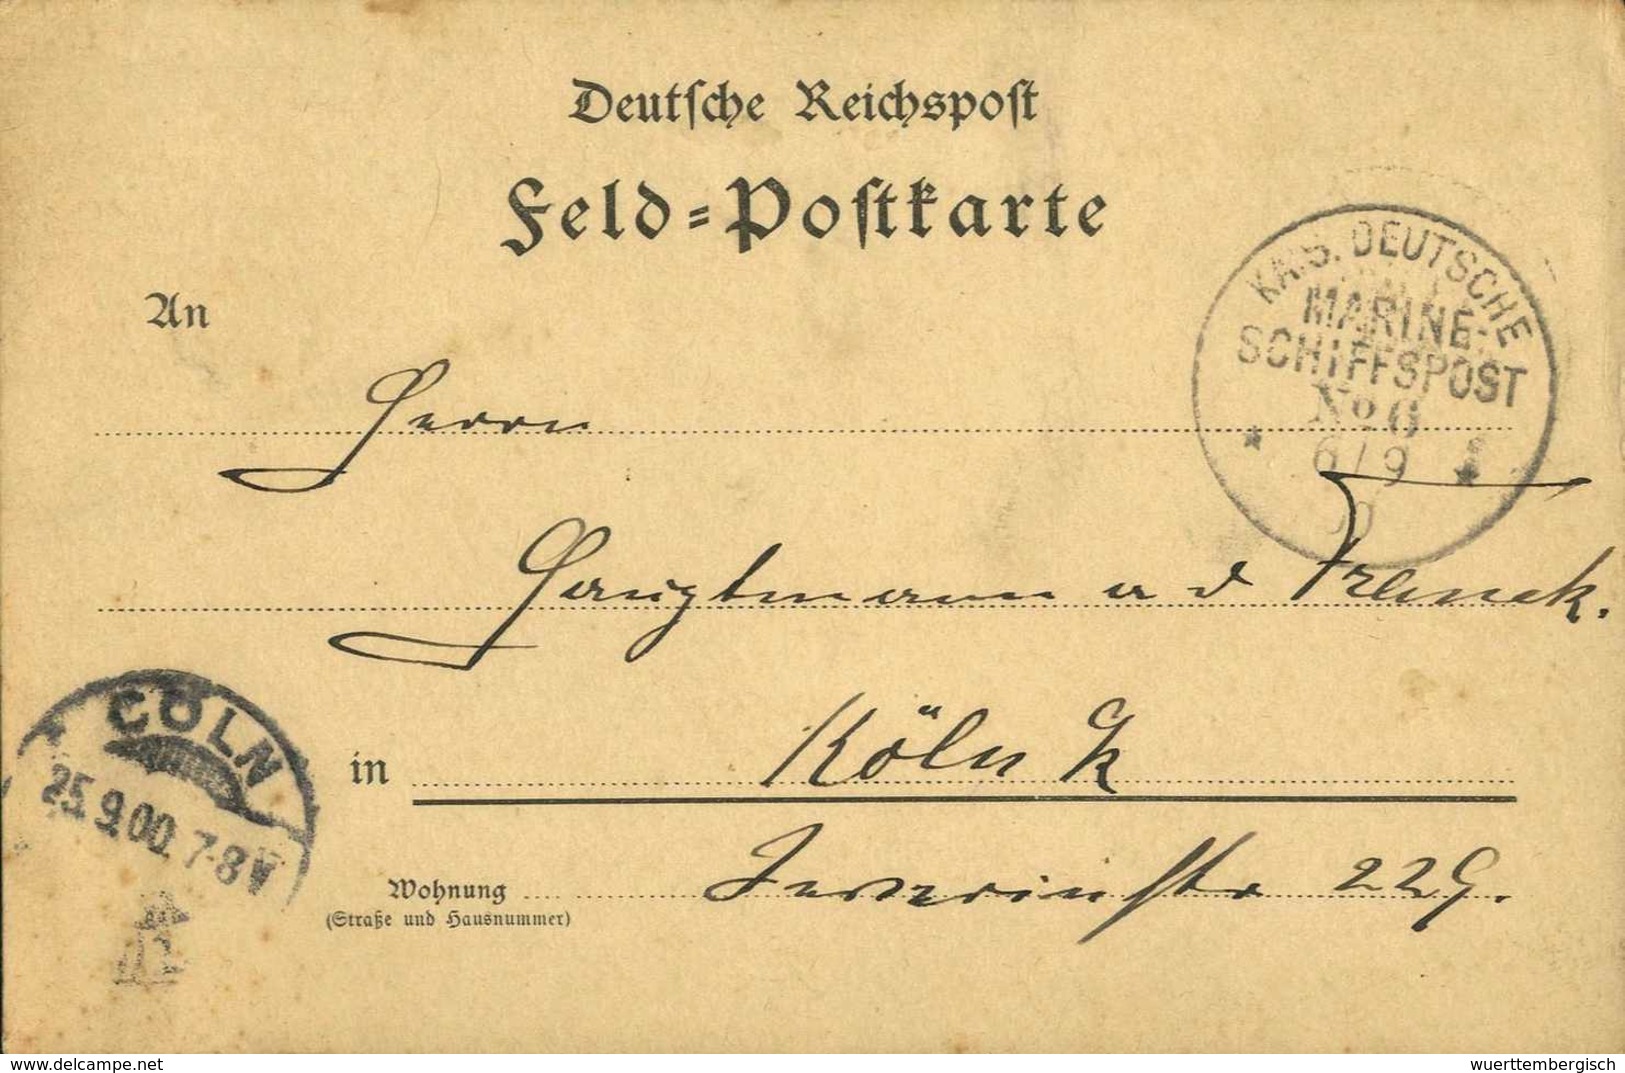 Deutsche Reichspost
Feld-Postkarte
KAIS. DEUTSCHE
MARINE-
SCHIFFSPOST
No 6
6/9
00
An
Herrn
Hauptmann a D Frenck.
CÖLN
25.9.00. 7-8V
in Köln
Wohnung Severinstr 229.
(Straße und Hausnummer)
delcampe.net
wuerttembergisch